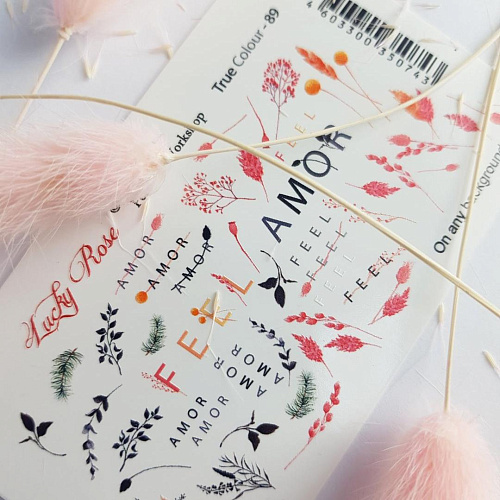 4 603300 350743
True Colour - 89
orkshop
On any background
Lucky Rose
FEEL
AMOR
FEEL
FEEL
FEEL
FEEL
AMOR
AMOR
AMOR
FEEL
AMOR
AMOR
AMOR
AMOR